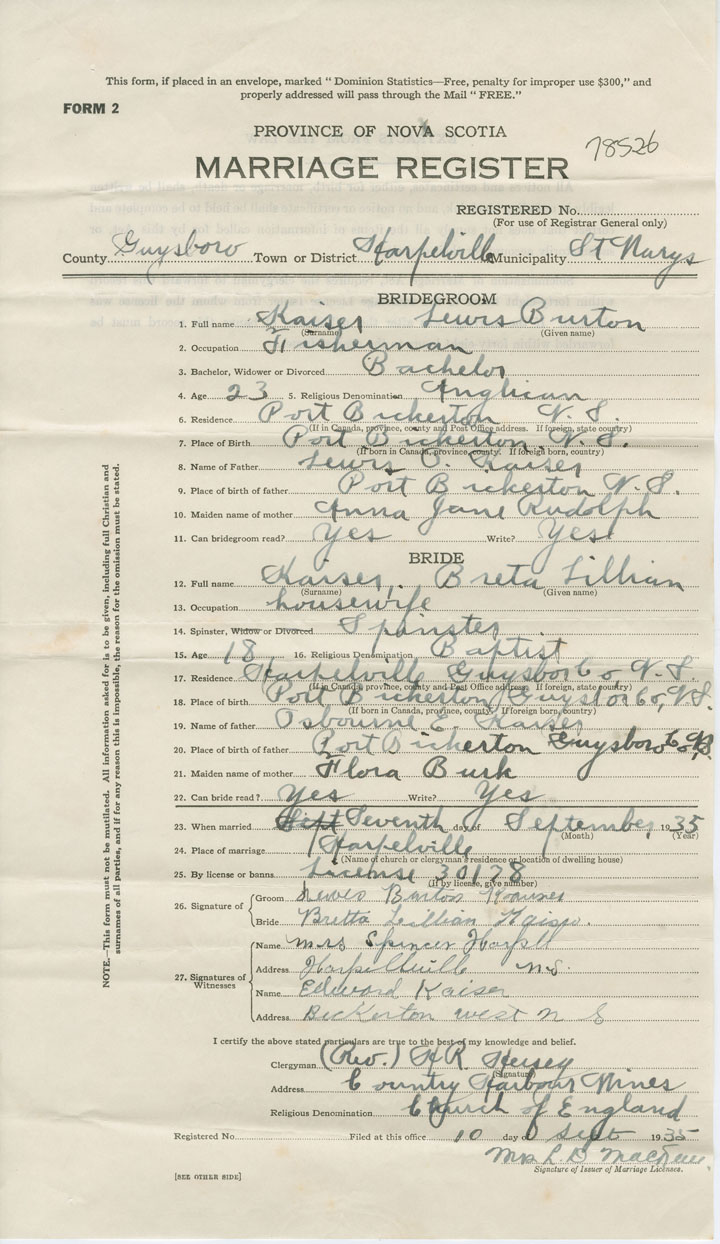 This form, if placed in an envelope, marked "Dominion Statistics—Free, penalty for improper use $300," and
properly addressed will pass through the Mail "FREE."
FORM 2
PROVINCE OF NOVA SCOTIA
78526
MARRIAGE REGISTER
REGISTERED No.
(For use of Registrar General only)
County Guysboro Town or District Harpelville Municipality St Marys
BRIDEGROOM
1. Full name Kaiser Lewis Burton
(Surname) (Given name)
2. Occupation Fisherman
3. Bachelor, Widower or Divorced Bachelor
4. Age 23 5. Religious Denomination Anglican
6. Residence Port Bickerton N. S.
(If in Canada, province, county and Post Office address. If foreign, state country)
7. Place of Birth Port Bickerton, N. S.
(If born in Canada, province, county. If foreign born, country)
8. Name of Father Lewis O. Kaiser
9. Place of birth of father Port Bickerton N. S.
10. Maiden name of mother Anna Jane Rudolph
11. Can bridegroom read? Yes Write? Yes
BRIDE
12. Full name Kaiser, Breta Lillian
(Surname) (Given name)
13. Occupation housewife
14. Spinster, Widow or Divorced Spinster
15. Age 18 16. Religious Denomination Baptist
17. Residence Harpelville Guysboro Co, N. S.
(If in Canada, province, county and Post Office address. If foreign, state country)
18. Place of birth Port Bickerton, Guysboro Co, N.S.
(If born in Canada, province, county. If foreign born, country)
19. Name of father Osbourne E. Kaiser
20. Place of birth of father Port Bickerton Guysboro Co, N.S.
21. Maiden name of mother Flora Burk
22. Can bride read? Yes Write? Yes
23. When married Sept Seventh day of September, 1935
(Month) (Year)
24. Place of marriage Harpelville
(Name of church or clergyman's residence or location of dwelling house)
25. By license or banns License 30178
(If by license, give number)
26. Signature of
Groom Lewis Burton
Bride Bretta Lillian Kaiser.
27. Signatures of Witnesses
Name Mrs Spencer Harpell
Address N.S.
Name Edward Kaiser
Address Bickerton west N S
I certify the above stated particulars are true to the best of my knowledge and belief.
Clergyman (Rev.) H.R. Hersey
(Signature)
Address Country Harbour Mines
Religious Denomination Church of England
Registered No. Filed at this office 10 day of Sept 1935
Mrs L. D.
Signature of Issuer of Marriage Licenses.
[SEE OTHER SIDE]
NOTE.—This form must not be mutilated. All information asked for is to be given, including full Christian and
surnames of all parties, and if for any reason this is impossible, the reason for the omission must be stated.